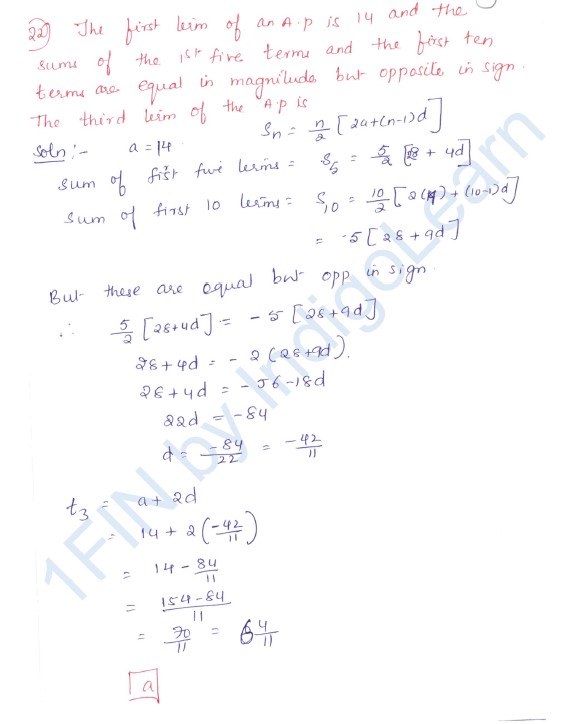 22) The first term of an A.P is 14 and the
sums of the 1st five terms and the first ten
terms are equal in magnitude but opposite in sign.
The third term of the A.P is
Soln:- a = 14 Sn = n/2 [2a+(n-1)d]
sum of first five terms = S5 = 5/2 [28 + 4d]
sum of first 10 terms = S10 = 10/2 [2(14) + (10-1)d]
= 5 [28 + 9d]
But these are equal but opp in sign.
∴ 5/2 [28+4d] = - 5 [28+9d]
28 + 4d = - 2 (28+9d).
28 + 4d = - 56 - 18d
22d = -84
d = -84/22 = -42/11
t3 = a + 2d
= 14 + 2 (-42/11)
= 14 - 84/11
= 154-84/11
= 70/11 = 6 4/11
a
1FIN by IndigoLearn